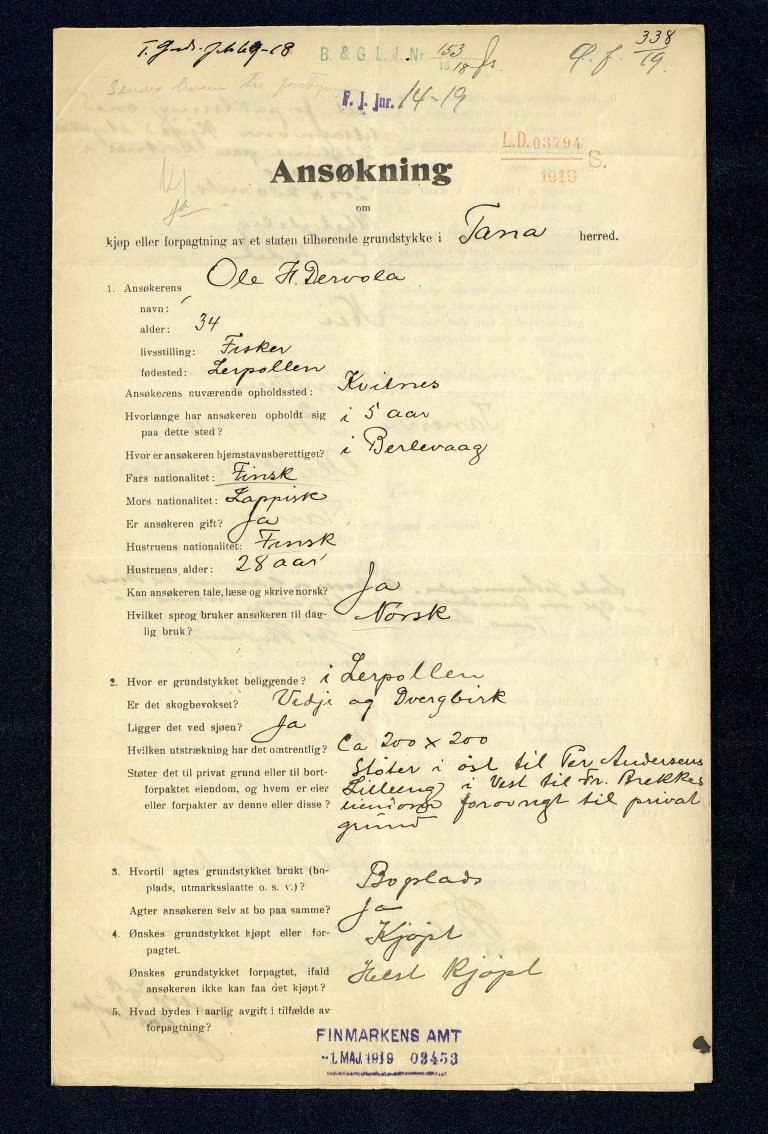 B. & G. L. J. Nr. 153
1918
338
19.
F. J. jnr. 14-19
L.D. 03794
1919 S.
Ansøkning
ja
om
kjøp eller forpagtning av et staten tilhørende grundstykke i Tana herred.
1. Ansøkerens Ole H. Dervola
navn:
alder: 34
livsstilling: Fisker
fødested: Lerpollen
Ansøkerens nuværende opholdssted: Kvitnes
Hvorlænge har ansøkeren opholdt sig i 5 aar
paa dette sted?
Hvor er ansøkeren hjemstavnsberettiget? i Berlevaag
Fars nationalitet: Finsk
Mors nationalitet: Lappisk
Er ansøkeren gift? Ja
Hustruens nationalitet: Finsk
Hustruens alder: 28 aar
Kan ansøkeren tale, læse og skrive norsk? Ja
Hvilket sprog bruker ansøkeren til dag- Norsk
lig bruk?
2. Hvor er grundstykket beliggende? i Lerpollen
Er det skogbevokset? Vedje og Dvergbirk
Ligger det ved sjøen? Ja
Hvilken utstrækning har det omtrentlig? Ca 200 x 200
Støter det til privat grund eller til bort- Støter i øst til Per Andersens
forpaktet eiendom, og hvem er eier Lilleeng i Vest til Fr. Brekkes
eller forpakter av denne eller disse? eiendom forøvrigt til privat
grund
3. Hvortil agtes grundstykket brukt (bo- Boplads
plads, utmarksslaatte o. s. v.)?
Agter ansøkeren selv at bo paa samme? Ja
4. Ønskes grundstykket kjøpt eller for- Kjøpt
pagtet.
Ønskes grundstykket forpagtet, ifald Helst kjøpt
ansøkeren ikke kan faa det kjøpt?
5. Hvad bydes i aarlig avgift i tilfælde av
forpagtning?
FINMARKENS AMT
-1. MAJ. 1919 03453